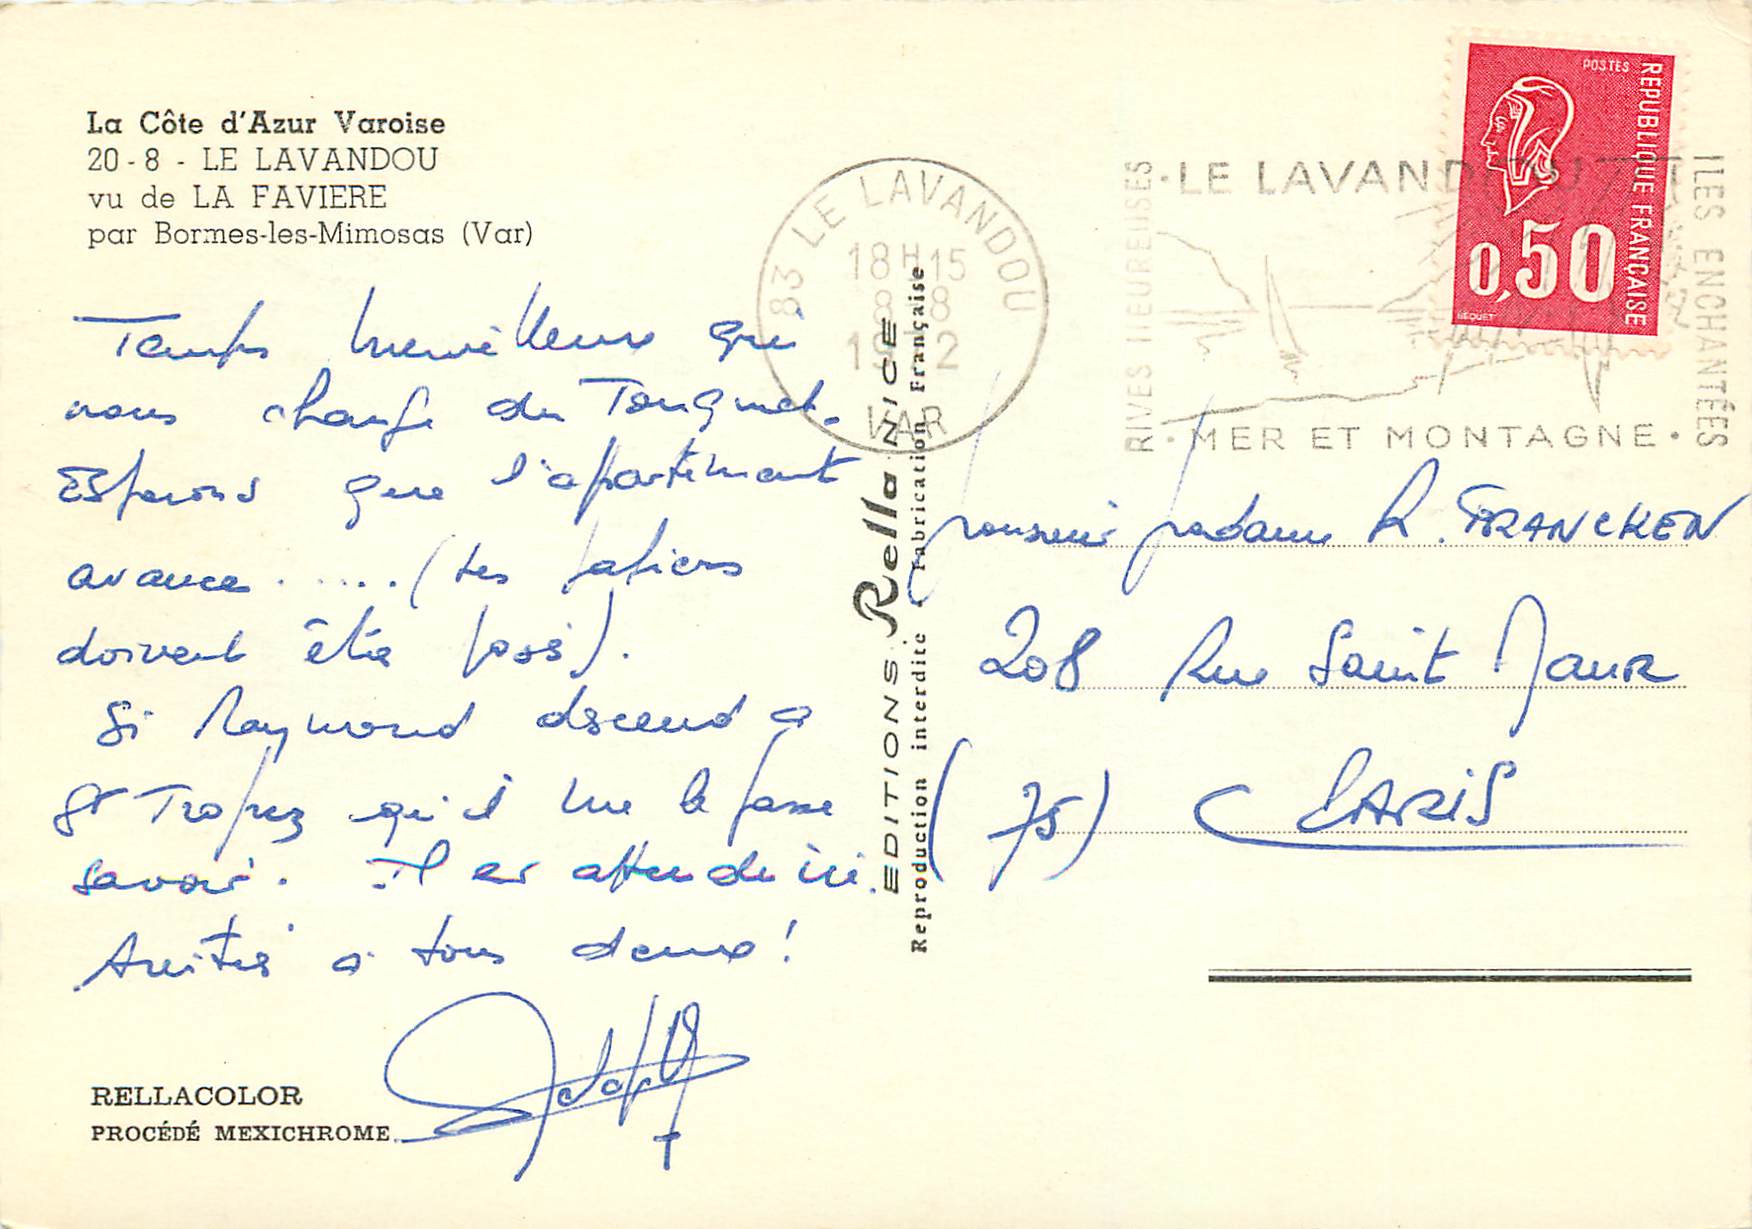 La Côte d'Azur Varoise
20-8 - LE LAVANDOU
vu de LA FAVIERE
par Bormes-les-Mimosas (Var)
Temps merveilleux qui
nous change du Touquet.
Espérons que l'apartement
avance ..... (les papiers
doivent être posés).
Si Raymond descend a
St Tropez qu'il me le fasse
savoir. Il est attendu ici.
Amitiés à tous deux!
RELLACOLOR
PROCÉDÉ MEXICHROME
EDITIONS Rella NICE
Reproduction interdite - Fabrication Française
83 LE LAVANDOU
18H15
8-8
VAR
RIVES HEUREUSES
· LE LAVANDOU
ILES ENCHANTÉES
· MER ET MONTAGNE ·
POSTES
REPUBLIQUE FRANÇAISE
0,50
BEQUET
Monsieur Madame R. FRANCKEN
208 Rue Saint Maur
(75) PARIS